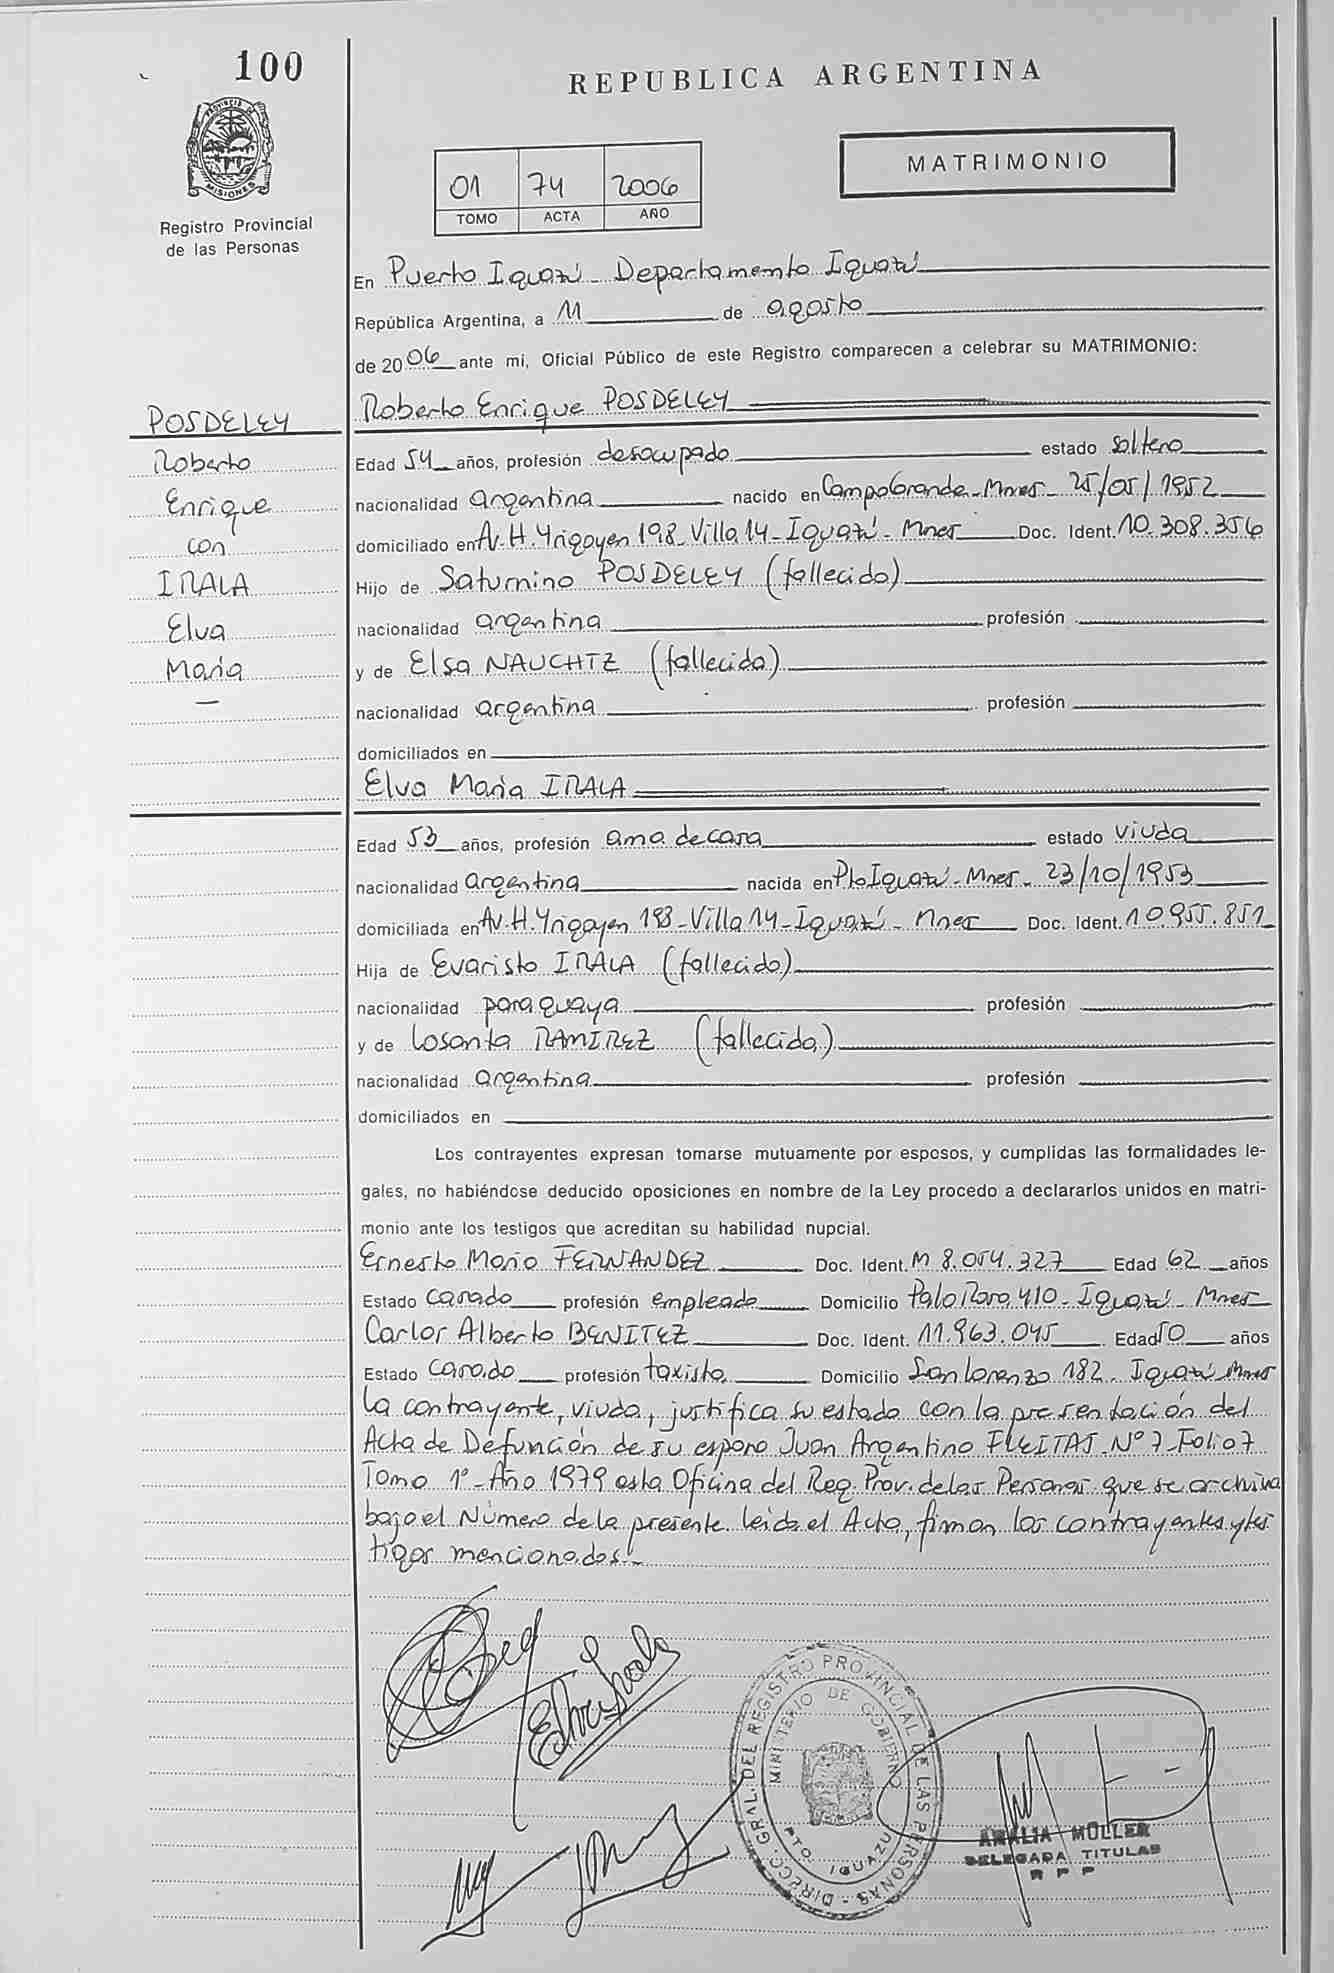 100
REPUBLICA ARGENTINA
PROVINCIA DE MISIONES
Registro Provincial
de las Personas
01 74 2006
TOMO ACTA AÑO
MATRIMONIO
En Puerto Iguazú - Departamento Iguazú
República Argentina, a 11 de agosto
de 2006 ante mí, Oficial Público de este Registro comparecen a celebrar su MATRIMONIO:
POSDELEY
Roberto
Enrique
con
IRALA
Elva
Maria
Roberto Enrique POSDELEY
Edad 54 años, profesión desocupado estado soltero
nacionalidad argentina nacido en Campo Grande - Mnes - 25/05/1952
domiciliado en Av. H. Yrigoyen 198 - Villa 14 - Iguazú - Mnes Doc. Ident. 10.308.356
Hijo de Saturnino POSDELEY (fallecido)
nacionalidad argentina profesión
y de Elsa NAUCHTZ (fallecida)
nacionalidad argentina profesión
domiciliados en
Elva Maria IRALA
Edad 53 años, profesión ama de casa estado viuda
nacionalidad argentina nacida en Pto Iguazú - Mnes - 23/10/1953
domiciliada en Av. H. Yrigoyen 198 - Villa 14 - Iguazú - Mnes Doc. Ident. 10.955.851
Hija de Evaristo IRALA (fallecido)
nacionalidad paraguaya profesión
y de Losanta RAMIREZ (fallecida)
nacionalidad argentina profesión
domiciliados en
Los contrayentes expresan tomarse mutuamente por esposos, y cumplidas las formalidades le-
gales, no habiéndose deducido oposiciones en nombre de la Ley procedo a declararlos unidos en matri-
monio ante los testigos que acreditan su habilidad nupcial.
Ernesto Mario FERNANDEZ Doc. Ident. M 8.054.327 Edad 62 años
Estado casado profesión empleado Domicilio Palo Rosa 410 - Iguazú - Mnes
Carlos Alberto BENITEZ Doc. Ident. 11.963.045 Edad 50 años
Estado casado profesión taxista Domicilio San Lorenzo 182 - Iguazú Mnes
La contrayente, viuda, justifica su estado con la presentación del
Acta de Defunción de su esposo Juan Argentino FLEITAS - N° 7 - Folio 7
Tomo 1° - Año 1979 esta Oficina del Reg. Prov. de las Personas que se archiva
bajo el Número de la presente. Leida el Acta, firman los contrayentes y tes
tigos mencionados.-
DIRECC. GRAL. DEL REGISTRO PROVINCIAL DE LAS PERSONAS -
MINISTERIO DE GOBIERNO
PTO. IGUAZU
AMALIA MULLER
DELEGADA TITULAR
R P P